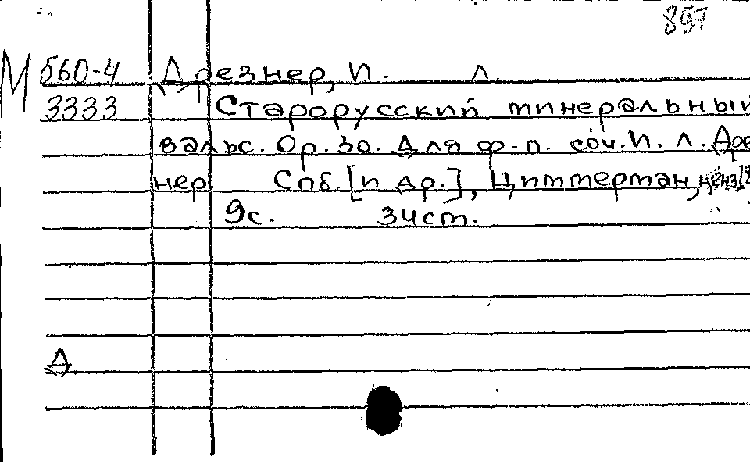 897
М 560-4 Дрезнер, И. Л.
3333 Старорусский минеральный
вальс. Ор. 30. Для ф.-п. соч. И. Л. Дре
нер Спб. [и др.], Циммерман, ценз.
9с. 3чст.
Д